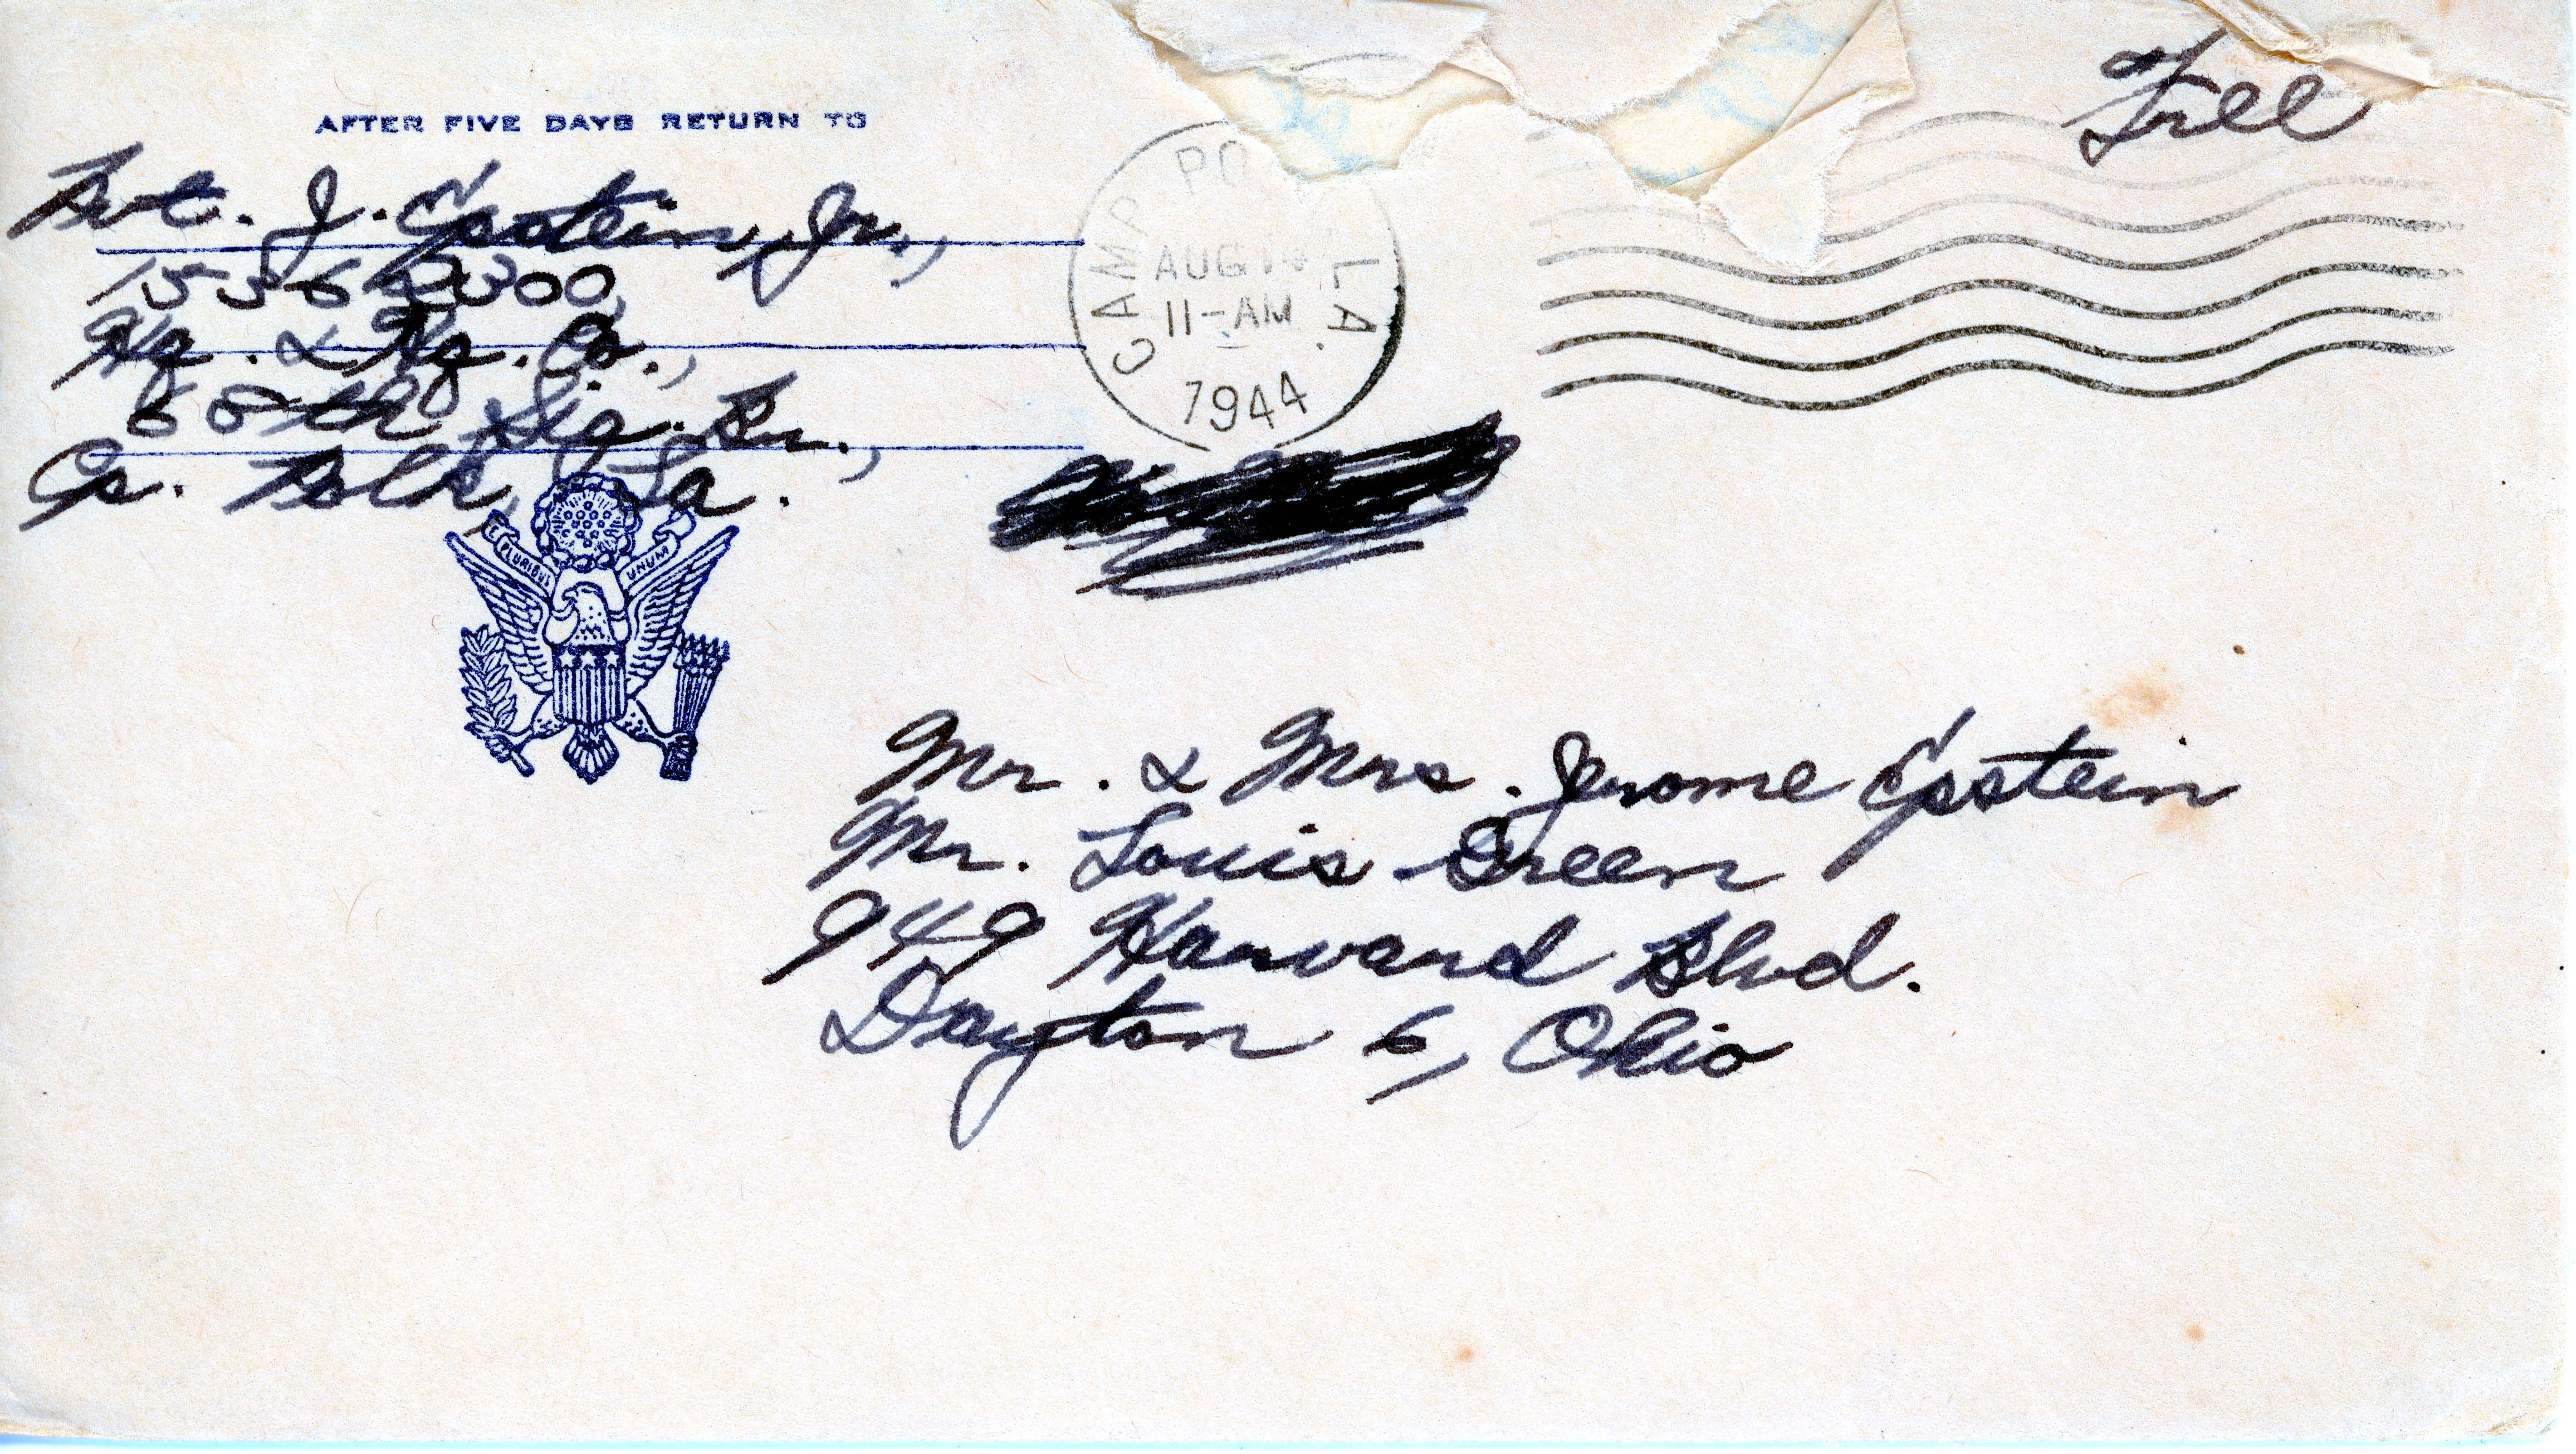 AFTER FIVE DAYS RETURN TO
Pvt. J. Epstein, Jr.,
Hq. & Hq. Co.,
68th Sig. Bn.,
Cp. Polk, La.
E PLURIBUS UNUM
CAMP PO LA.
AUG
11-AM
1944
Free
Mr. & Mrs. Jerome Epstein
Mr. Louis Green
949 Harvard Blvd.
Dayton 6, Ohio